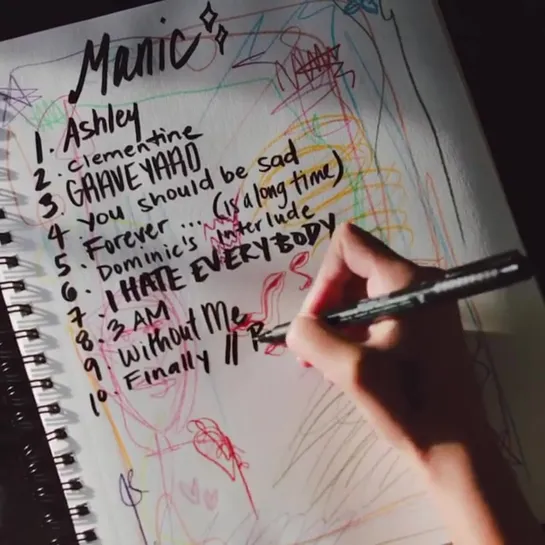 Manic
1. Ashley
2. clementine
3. GRAVEYARD
4. you should be sad
5. Forever ... (is a long time)
6. Dominic's interlude
7. I HATE EVERYBODY
8. 3 AM
9. Without Me
10. Finally //